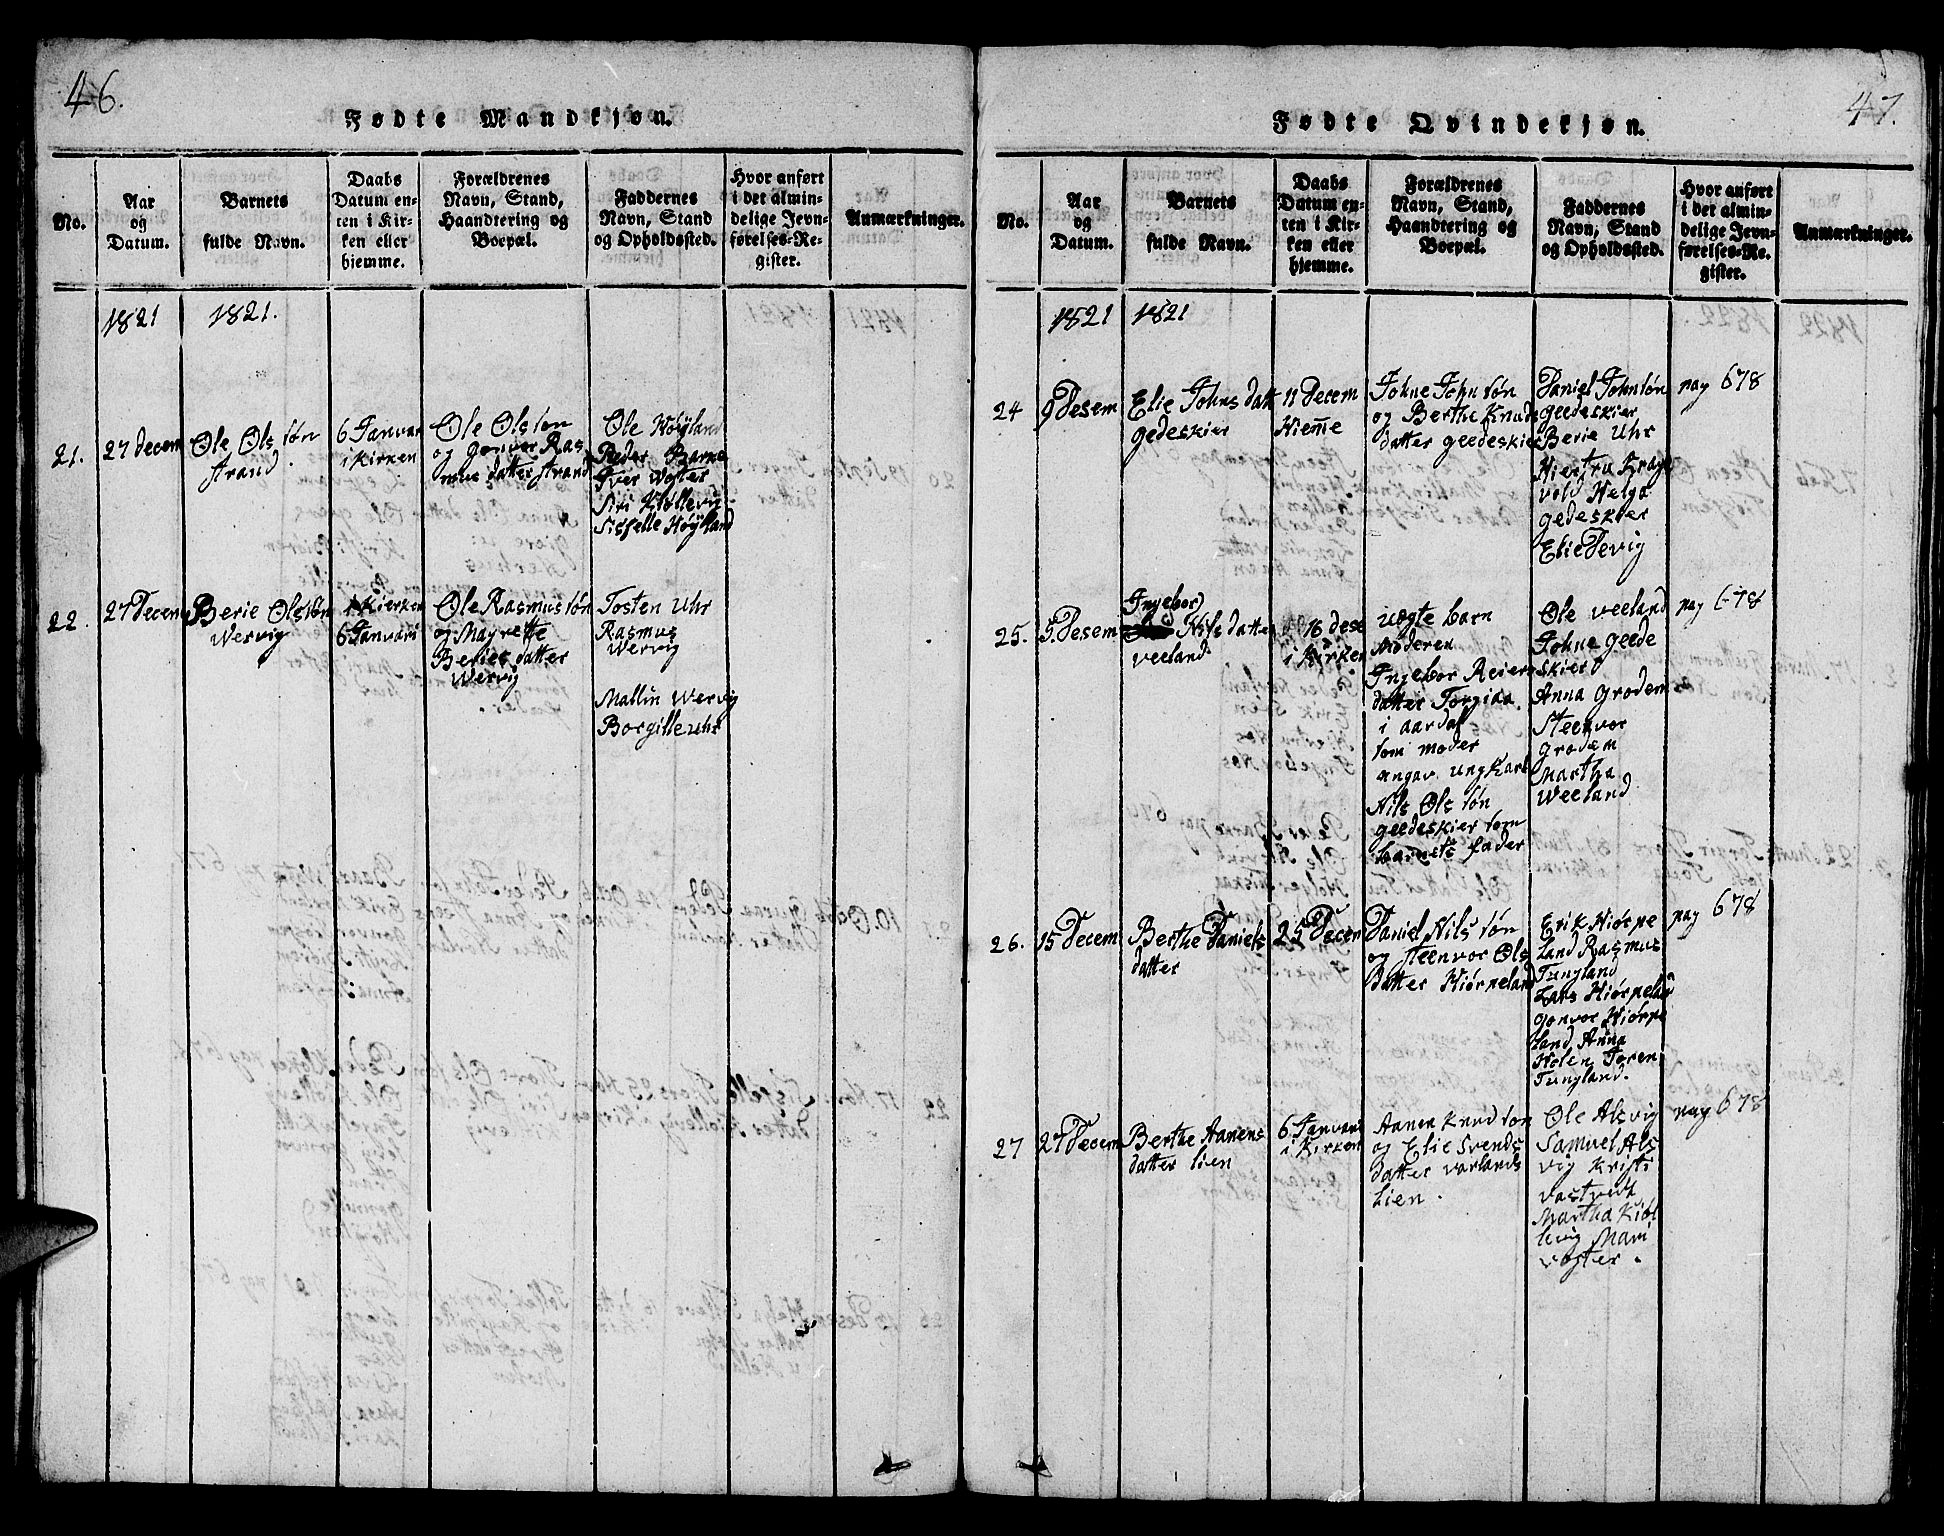 46.
Fødte Mandkjøn.
No.
Aar
og
Datum.
Barnets
fulde Navn.
Daabs
Datum en-
ten i Kir-
ken eller
hjemme.
Forældrenes
Navn, Stand,
Haandtering og
Boepæl.
Faddernes
Navn, Stand
og Opholdssted.
Hvor anført
i det almin-
delige Jevn-
førelses-Re-
gister.
Anmærkninger.
1821
1821.
21.
27 decem
Ole Ols søn
strand
6 Januar
i kirken
Ole Ols søn
og gonvor Ras
mus datter strand
Ole Høyland
Peder Barne
Iver Woster
Siri Kløllevig
Sisselle Høyland
22.
27 Decem
Berie Olssøn
Wervig
i Kierken
6 Januari
Ole Rasmus søn
og Mayrette
Beries datter
Wervig
Tosten Uhr
Rasmus
Wervig
Mallin Wervig
Borgille Uhr
47.
Fødte Qvindekjøn.
No.
Aar
og
Datum.
Barnets
fulde Navn.
Daabs
Datum en-
ten i Kir-
ken eller
hjemme.
Forældrenes
Navn, Stand,
Haandtering og
Boepæl.
Faddernes
Navn, Stand
og Opholdssted.
Hvor anført
i det almin-
delige Jevn-
førelses-Re-
gister.
Anmærkninger.
1821
1821
24
9 Desem
Elie Johns datt
gedeskier
11 Decem
Hieme
Johne John søn
og Berthe Knuds
datter geedeskier
Daniel Johnsøn
geedeskier
Berie Uhr
Hiertru Krage
vold Helga
gedeskier
Elie Tevig
pag 678
25.
5 Desem
Ingebor
Nils datter
veeland
16 dese
i Kirken
uægte barn
moderen
Ingebor Reiers
datter Torgiaa
i aardal
som moder
angav ungkarl
Nils Ols søn
geedeskier som
barnets fader
Ole veeland
Johne geede
skier
Anna grodem
Steenvor
grodem
Martha
Weeland
pag 678
26.
15 Decem
Berthe Daniels
datter
25 Decem
Daniel Nils søn
og Steenvor Ols
datter Hiørpeland
Erik Hiørpe
land Rasmus
Tungland
Lars Hiørpelan
gonvor Hiørpe
land Anna
Holen Joren
Tungland.
pag 678
27
27 Decem
Berthe Aanens
datter lien
6 Januari
i Kirken
Aanen Knud søn
og Elie Svends
datter varlands
Lien.
Ole Alsvig
Samuel Als
vig Kristi
vastvedt
Martha Kiøl
levig Mari
voster.
pag 678